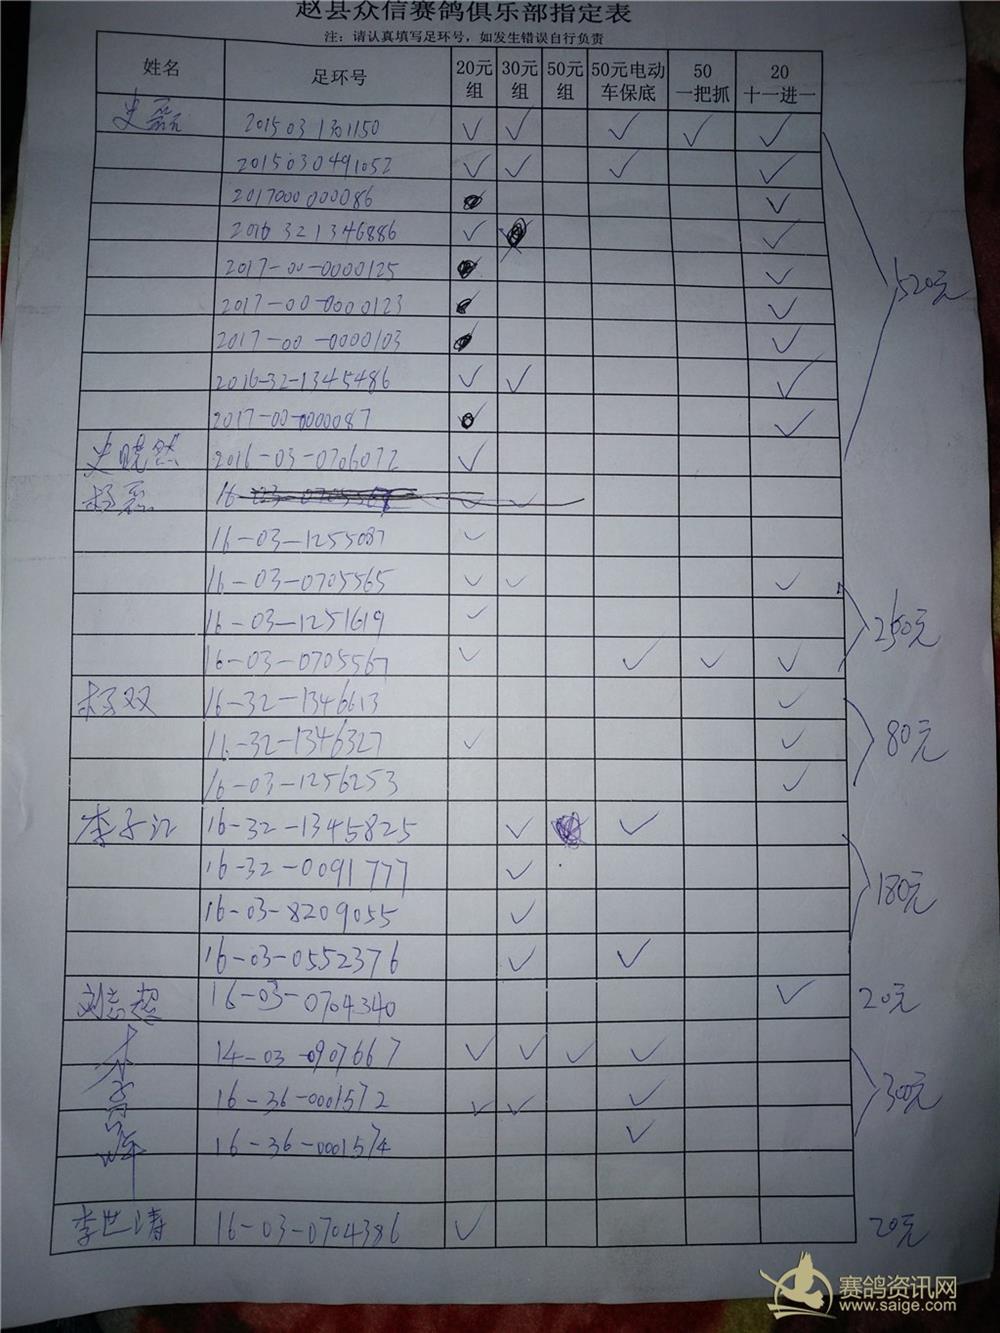 赵县众信赛鸽俱乐部指定表
注：请认真填写足环号，如发生错误自行负责
姓名 足环号 20元组 30元组 50元组 50元电动车保底 50一把抓 20十一进一
史磊 2015031301150 ✓ ✓ ✓ ✓ ✓
2015030491052 ✓ ✓ ✓ ✓
2017000000086 ✓
2016321346886 ✓ ✓
2017-00-0000125 ✓
520元
2017-00-0000123 ✓
2017-00-0000103 ✓
2016-32-1345486 ✓ ✓ ✓
2017-00-0000087 ✓
史晓然 2016-03-0706072 ✓
16-03-0705567
16-03-1255087 ✓
16-03-0705565 ✓ ✓ ✓
16-03-1251619 ✓
250元
16-03-0705567 ✓ ✓ ✓ ✓
杨双 16-32-1346613 ✓
16-32-1346327 ✓ ✓
80元
16-03-1256253 ✓
李子江 16-32-1345825 ✓ ✓
16-32-0091777 ✓
180元
16-03-8209055 ✓
16-03-0552376 ✓ ✓
刘志超 16-03-0704340 ✓ 20元
14-03-0907667 ✓ ✓ ✓ ✓
16-36-0001572 ✓ ✓ ✓
300元
16-36-0001574 ✓
李世涛 16-03-0704386 ✓ 20元
赛鸽资讯网
www.saige.com